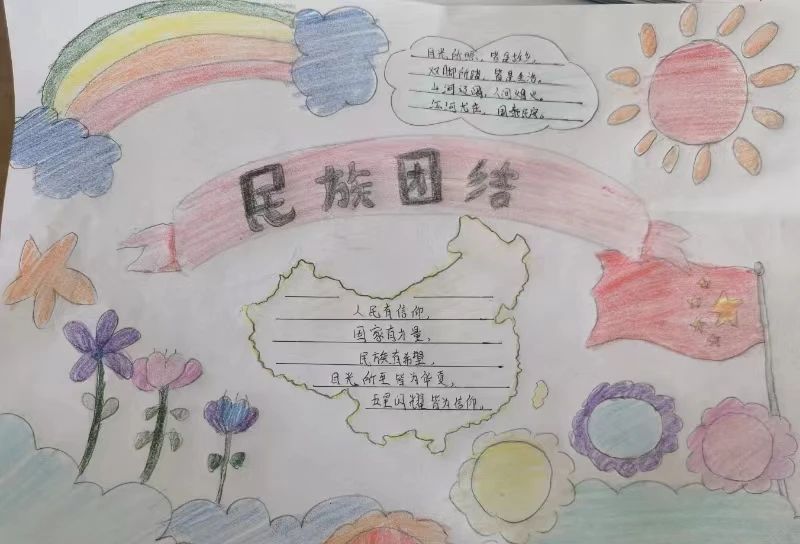 目光所照，皆是故乡，
双脚所踏，皆是生活。
山河辽阔，人间烟火。
民族团结
人民有信仰，
国家有力量，
民族有希望，
目光所至皆为华夏，
五星闪耀皆为信仰。